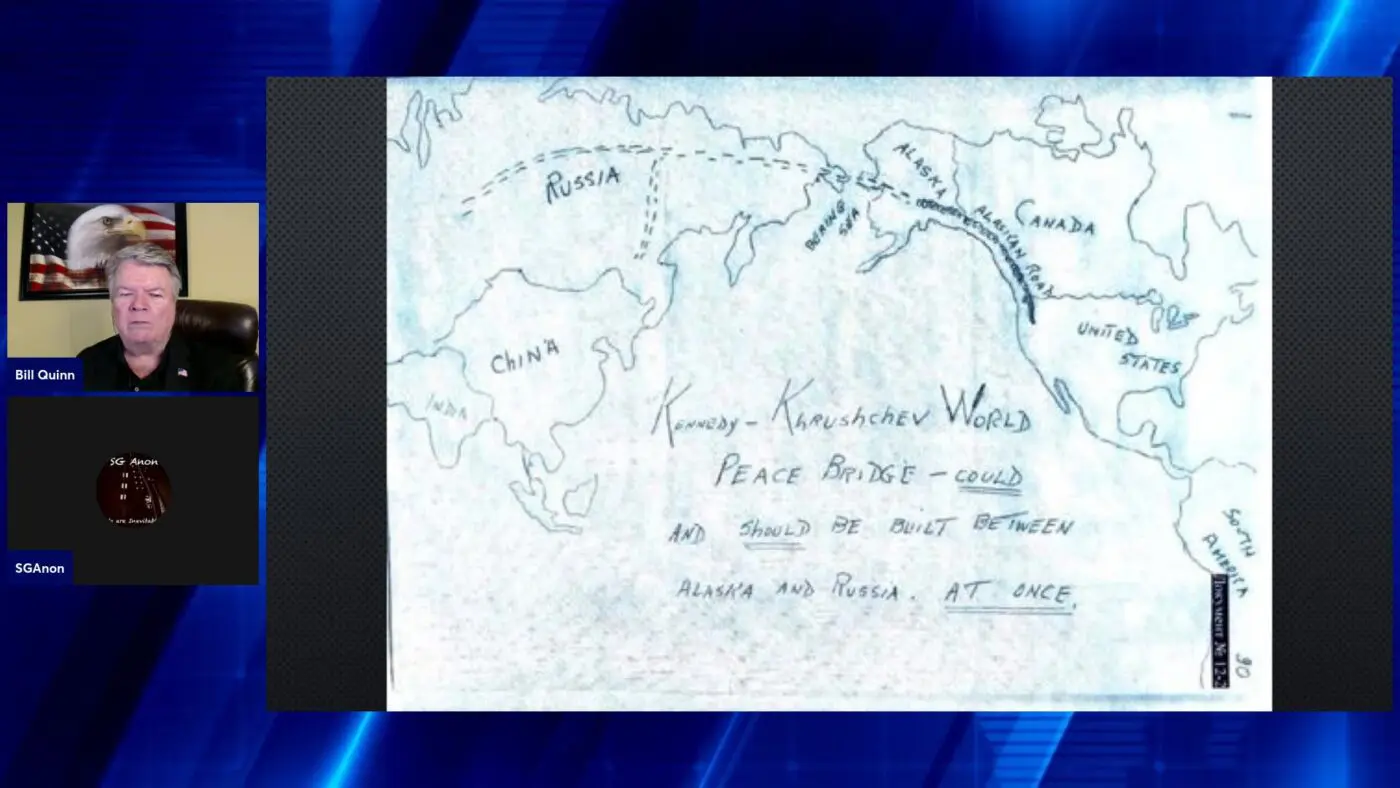 RUSSIA
ALASKA
BERING
SEA
ALASKAN ROAD
CANADA
UNITED
STATES
CHINA
INDIA
KENNEDY – KHRUSHCHEV WORLD
PEACE BRIDGE – COULD
AND SHOULD BE BUILT BETWEEN
ALASKA AND RUSSIA. AT ONCE.
SOUTH
AMERICA
Документ № 12-2
90
Bill Quinn
SG Anon
SGAnon